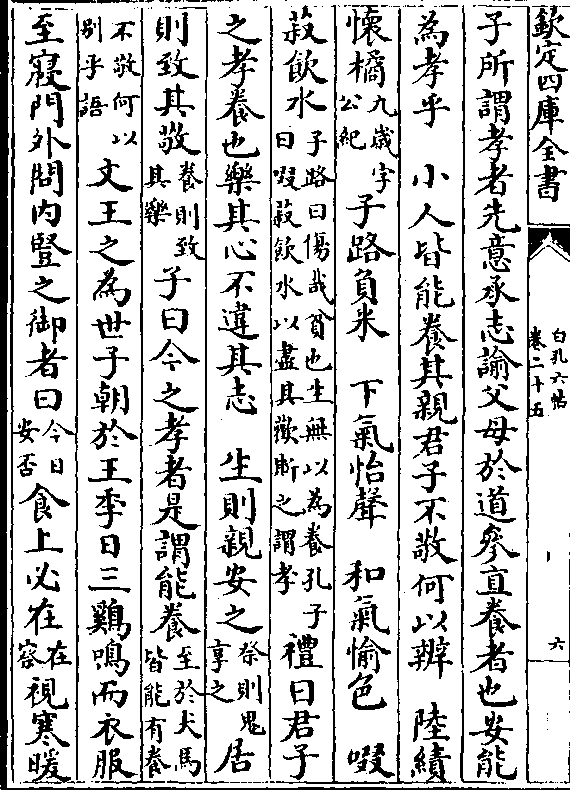 欽定四庫全書
白孔六帖
卷二十五
六
子所謂孝者先意承志諭父母於道參直養者也安能
為孝乎　小人皆能養其親君子不敬何以辨　陸績
懷橘九歲字公紀子路負米　下氣怡聲　和氣愉色　啜
菽飲水子路曰傷哉貧也生無以為養孔子曰啜菽飲水以盡其歡斯之謂孝禮曰君子
之孝養也樂其心不違其志　生則親安之祭則鬼享之居
則致其敬養則致其樂子曰今之孝者是謂能養至於犬馬皆能有養
不敬何以別乎語文王之為世子朝於王季日三鷄鳴而衣服
至寢門外問內豎之御者曰今日安否食上必在在察視寒暖